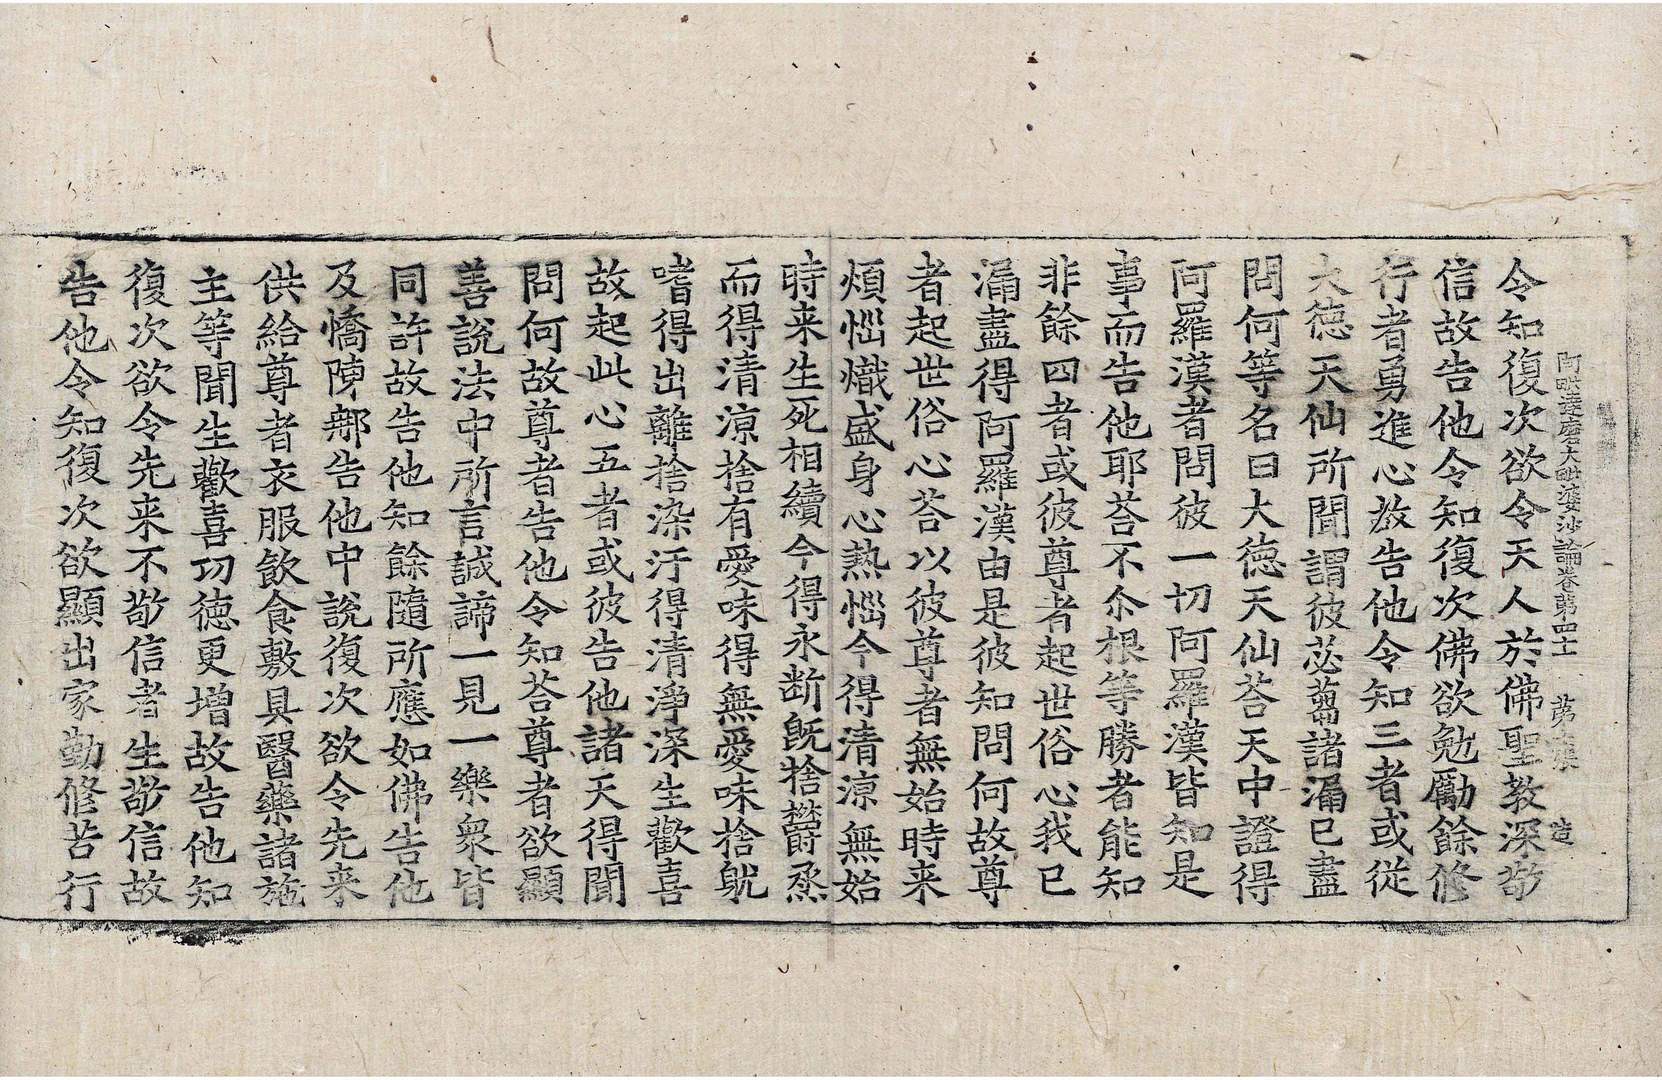 阿毗達磨大毗婆沙論卷第四十 第 張 造
令知復次欲令天人於佛聖教深敬
信故告他令知復次佛欲勉勵餘修
行者勇進心故告他令知三者或從
大德天仙所聞謂彼苾蒭諸漏已盡
問何等名曰大德天仙荅天中證得
阿羅漢者問彼一切阿羅漢皆知是
事而告他耶荅不尒根等勝者能知
非餘四者或彼尊者起世俗心我已
漏盡得阿羅漢由是彼知問何故尊
者起世俗心荅以彼尊者無始時来
煩惱熾盛身心熱惱今得清涼無始
時来生死相續今得永断旣捨欝烝
而得清涼捨有愛味得無愛味捨躭
嗜得出離捨染汙得清淨深生歡喜
故起此心五者或彼告他諸天得聞
問何故尊者告他令知荅尊者欲顯
善說法中所言誠諦一見一樂衆皆
同許故告他知餘隨所應如佛告他
及憍陳那告他中說復次欲令先来
供給尊者衣服飲食敷具醫藥諸施
主等聞生歡喜功德更增故告他知
復次欲令先来不敬信者生敬信故
告他令知復次欲顯出家勤修苦行